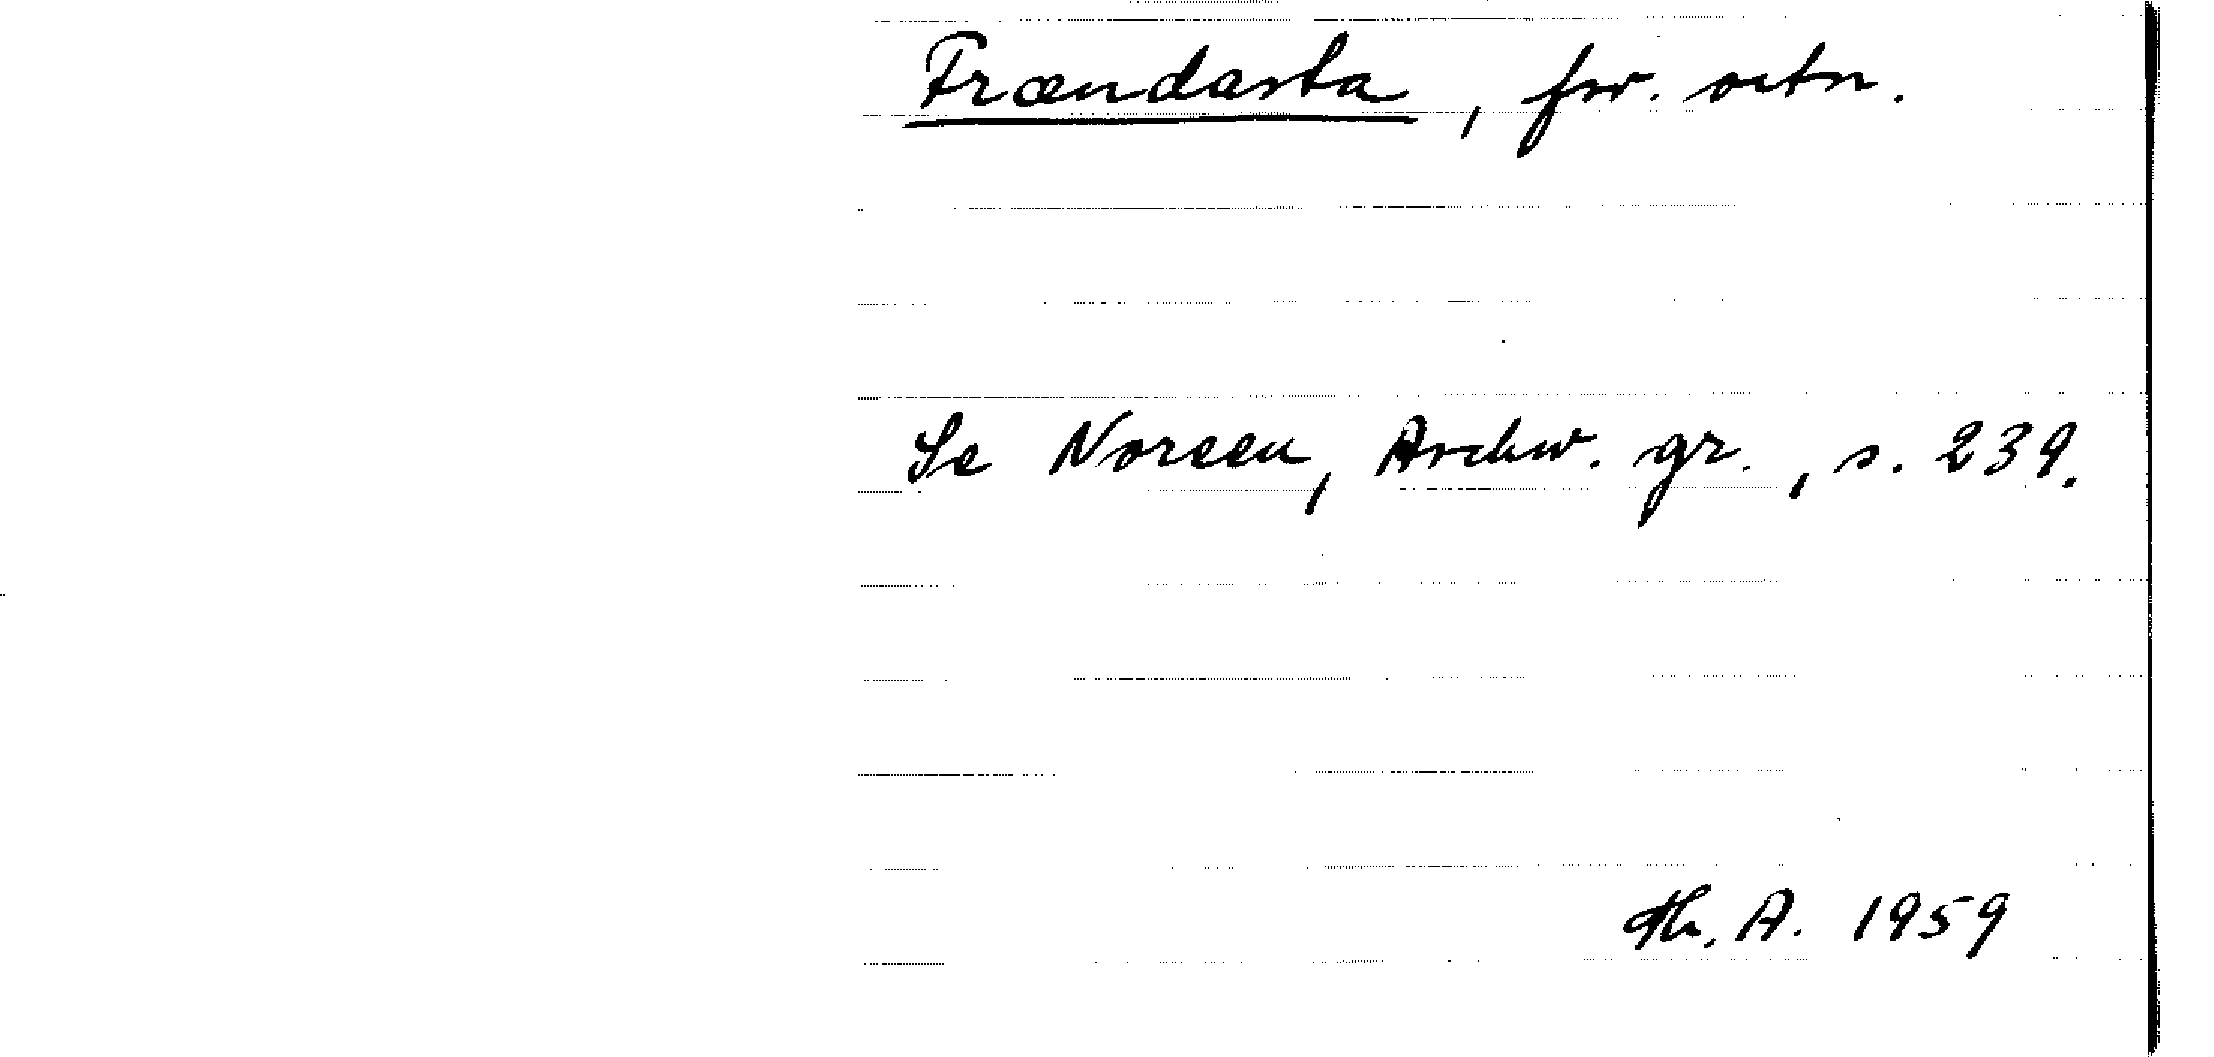 Frændasta, fsv. ortn.
Se Noreen, Aschw. gr., s. 239.
Th. A. 1959